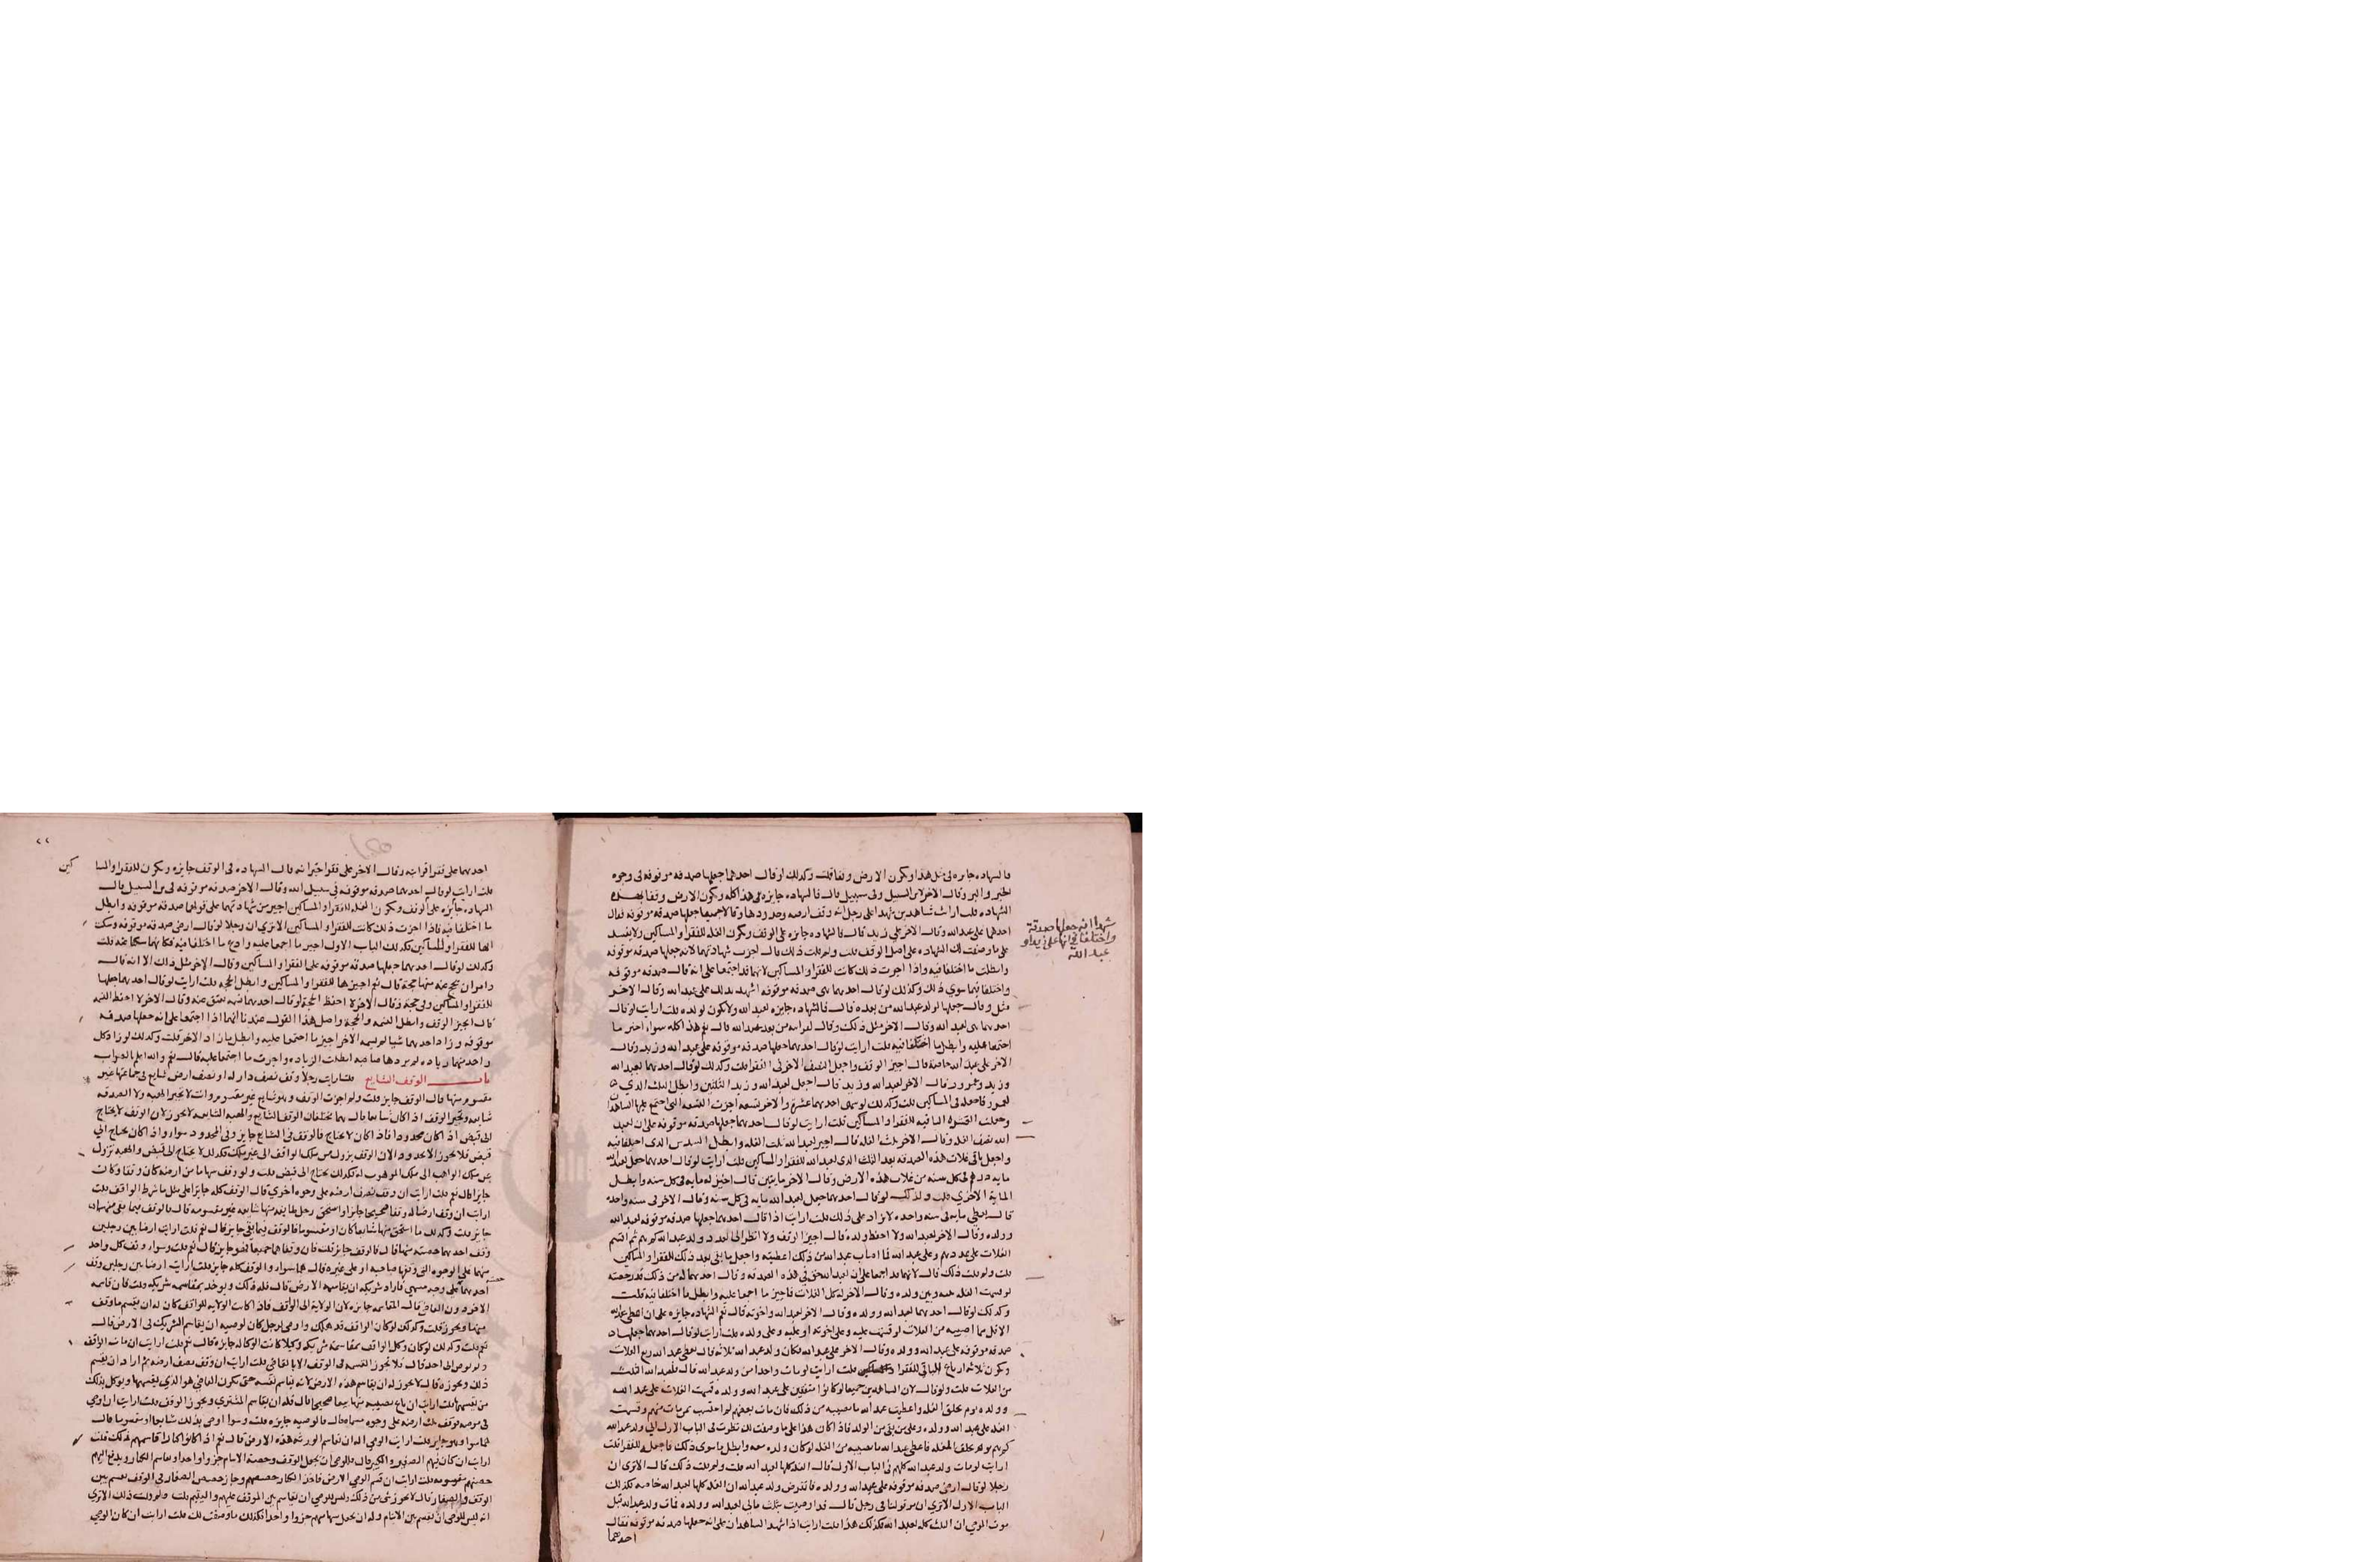 فالشهاده جايزه في مثل هذا وتكون الارض وقفا قلت وكذلك لو قال احدهما جعلها صدقه موقوفه في وجوه
الخير والبر وقال الاخر لابن السبيل وفي سبيل قال فالشهاده جايزه في هذا كله وتكون الارض وقفا بهذه
الشهاده قلت ارايت شاهدين شهدا على رجل انه وقف ارضه وحددها وقالا جميعا جعلها صدقه موقوفه فقال
احدهما على عبد الله وقال الاخر على زيد قال فالشهاده جايزه على الوقف وتكون الغله للفقرا والمساكين ولا يفسد
على ما وصفت لك الشهاده على اصل الوقف قلت ولم قلت ذلك قال اجزت شهادتهما لانه جعلها صدقه موقوفه
وابطلت ما اختلفا فيه واذا اجزت ذلك كانت للفقرا والمساكين لانهما قد اجتمعا على انه قال صدقه موقوفه
واختلفا فيما سوي ذلك وكذلك لو قال احدهما هي صدقه موقوفه اشهد بذلك على عبد الله وقال الاخر
مثل وقال جعلها لولد عبد الله من بعده قال فالشهاده جايزه لعبد الله ولا تكون لولده قلت ارايت لو قال
احدهما هي لعبد الله وقال الاخر مثل ذلك وقال لقرابته من بعد عبد الله قال نعم هذا كله سواء اجيز ما
اجتمعا عليه وابطل ما اختلفا فيه قلت ارايت لو قال احدهما جعلها صدقه موقوفه على عبد الله وزيد وقال
الاخر على عبد الله خاصة قال اجيز الوقف واجعل النصف الاخر في الفقرا قلت وكذلك لو قال احدهما لعبد الله
وزيد وعمرو وقال الاخر لعبد الله وزيد قال اجعل لعبد الله وزيد الثلثين وابطل الثلث الذي
لعمرو فاجعله في المساكين قلت وكذلك لو سمى احدهما عشرة والاخر تسعه اجزت التسعه التي اجتمع عليها الشاهدان
وجعلت الباقيه للفقرا والمساكين قلت ارايت لو قال احدهما جعلها صدقه موقوفه على ان لعبد
الله نصف الغله وقال الاخر ثلث الغله قال اجيز لعبد الله ثلث الغله وابطل السدس الذي اختلفا فيه
واجعل باقي غلات هذه الصدقه بعد الثلث الذي لعبد الله للفقرا والمساكين قلت ارايت لو قال احدهما جعل لعبد الله
مايه درهم في كل سنه من غلات هذه الارض وقال الاخر مايتين قال اجيز له مايه في كل سنه وابطل
المايه الاخري قلت وكذلك لو قال احدهما جعل لعبد الله مايه في كل سنه وقال الاخر في سنه واحده
قال يعطي مايه في سنه واحده لا يزاد على ذلك قلت ارايت اذا قال احدهما جعلها صدقه موقوفه لعبد الله
وولده وقال الاخر لعبد الله ولا احفظ ولده قال اجيز الوقف ولا انظر الى عدد ولد عبد الله كم هم ثم اقسم
الغلات على عددهم وعلى عبد الله فما اصاب عبد الله من ذلك اعطيته واجعل ما بقي بعد ذلك للفقرا والمساكين
قلت ولم قلت ذلك قال لانهما قد اجمعا على ان لعبد الله حق في هذه الصدقه وقال احدهما له من ذلك
وكذلك لو قال احدهما لعبد الله وولده وقال الاخر لعبد الله واخوته قال نعم الشهاده جايزه على ان اعطي عبد الله
الاقل مما اصيبه من الغلات لو قسمت عليه وعلى اخوته او عليه وعلى ولده قلت ارايت لو قال احدهما جعلها
صدقه موقوفه على عبد الله وولده وقال الاخر على عبد الله فكان ولد عبد الله ثلاثه قال يعطى عبد الله ربع الغلات
وتكون ثلاثه ارباع الباقي للفقرا قلت ارايت لو مات واحدا من ولد عبد الله قال فلعبد الله الثلث
من الغلات قلت ولم قال لان الشاهدين جميعا لو كانوا متفقين على عبد الله وولده قسمت الغلات على عبد الله
وولده يوم تخلق الغله واعطيت عبد الله ما يصيبه من ذلك فان مات بعضهم لم احتسب بمن مات منهم وقسمت
الغله على عبد الله وولده وعلى من بقي من الولد فاذا كان هذا على ما وصفت لك نظرت في الباب الاول الى ولد عبد الله
كم هم يوم تخلق الغله فاعطي عبد الله ما يصيبه من الغله لو كان ولده معه وابطل ما سوى ذلك فاجعله للفقرا قلت
ارايت لو مات ولد عبد الله كلهم في الباب الاول قال الغله كلها لعبد الله قلت ولم قلت ذلك قال الا ترى ان
رجلا لو قال ارضي صدقه موقوفه على عبد الله وولده فانقرض ولد عبد الله ان الغله كلها لعبد الله خاصه فكذلك
الباب الاول الا ترى ان رجل قال قد اوصيت بثلث مالي لعبد الله وولده فمات ولد عبد الله قبل
موت الموصي ان الثلث كله لعبد الله فكذلك هذا قلت ارايت اذا شهد الشاهدان على انه جعلها صدقه موقوفه فقال
احدهما
شهدا انه جعلها صدقة
واختلفا في انها على زيد او
عبد الله
احدهما على فقرا قرابته وقال الاخر على فقرا جيرانه قال الشهاده في الوقف جايزه وتكون للفقرا والمسا
كين
قلت ارايت لو قال احدهما صدقه موقوفه في سبيل الله وقال الاخر صدقه موقوفه في بن السبيل قال
الشهاده جايزه على الوقف وتكون الغله للفقرا والمساكين اجيز من شهادتهما على قولهما صدقه موقوفه وابطل
ما اختلفا فيه فاذا اجزت ذلك كانت للفقرا والمساكين الا تري ان رجلا لو قال ارضي صدقه موقوفه وسكت
انها للفقرا والمساكين فكذلك الباب الاول اجيز ما اجمعا عليه وادع ما اختلفا فيه فكانهما سكتا عنه قلت
وكذلك لو قال احدهما جعلها صدقه موقوفه على الفقرا والمساكين وقال الاخر مثل ذلك الا انه قال
وامر ان يحج عنه منها حجة قال نعم اجيزها للفقرا والمساكين وابطل الحجه قلت ارايت لو قال احدهما جعلها
للفقرا والمساكين وفي حجة وقال الاخر لا احفظ الحجة
قال اجيز الوقف وابطل النسمه والحجة واصل هذا القول عندنا انهما اذا اجتمعا على انه جعلها صدقه
موقوفه وزاد احدهما شيا لم يسمه الاخر اجيز ما اجتمعا عليه وابطل ما زاد الاخر قلت وكذلك لو زاد كل
واحد منهما زياده لم يزدها صاحبه ابطلت الزياده واجزت ما اجتمعا عليه قال نعم والله اعلم بالصواب
باب الوقف الشايع قلت ارايت رجلا وقف نصف دار له او نصف ارض شايع في جماعتها غير
مقسوم منها قال الوقف جايز قلت ولم اجزت الوقف وهو شايع غير مقسوم وانت لا تجيز الهبه ولا الصدقه
شايعه وتجيز الوقف اذا كان شايعا قال هما يختلفان الوقف الشايع والهبه الشايعه لا تجوز لان الوقف لا يحتاج
الى قبض اذ كان محدودا فاذا كان لا يحتاج فالوقف في الشايع جايز وفي المحدود سواء واذا كان يحتاج الي
قبض فلا يجوز الا محدود الان الوقف يزول من ملك الواقف الى غير ملك فكذلك لا يحتاج الى قبض والهبه تزول
عن ملك الواهب الى ملك الموهوب له فكذلك يحتاج الى قبض قلت ولو وقف سهاما من ارضه كان وقفا وكانت
جايزا قال نعم قلت ارايت ان وقف نصف ارضه على وجوه اخري قال الوقف كله جايز على مثل ما شرط الواقف قلت
ارايت ان وقف ارضا له وقفا صحيحا جايزا واستحق رجل طايفه منها شايعه غير مقسومه قال فالوقف فيما بقي منها
جايز قلت وكذلك ما استحق منها شايعا كان او مقسوما فالوقف فيما بقي جايز قال نعم قلت ارايت ارضا بين رجلين
وقف احدهما حصته منها قال فالوقف جايز قلت فان وقفاها جميعا فهو جايز قال نعم قلت وسواء وقف كل واحد
منهما على الوجوه التي وقفها صاحبه او على غيره قال هما سواء والوقف كله جايز قلت ارايت ارضا بين رجلين وقف
احدهما على وجه مسمى فاراد شريكه ان يقاسمه الارض قال فله ذلك ويوخذ بمقاسمه شريكه قلت فان قاسمه
الاخر دون القاضي قال المقاسمه جايزه لان الولاية الى الواقف فاذا كانت الولايه للواقف كان له ان يقسم ما وقف
منها ويجوز قلت وكذلك لو كان الواقف قد هلك واوصى لرجل كان لوصيه ان يقاسم الشريك في الارض قال
نعم قلت وكذلك لو كان وكل الواقف بمقاسمه شريكه وكيلا كانت الوكاله جايزه قال نعم قلت ارايت ان مات الواقف
ولم يوص الى احد قال فلا تجوز القسمه في الوقف الا بالقاضي قلت ارايت ان وقف نصف ارضه ثم اراد ان يقسم
ذلك ويحوزه قال لا يجوز له ان يقاسم هذه الارض لانه يقاسم نفسه حتى يكون القاضي هو الذي يقسمها ويوكل بذلك
من يقسمها قلت ارايت ان باع نصيبه منها بيعا صحيحا قال فله ان يقاسم المشتري ويجوز الوقف قلت ارايت ان اوصي
في مرضه بوقف ثلث ارضه على وجوه سماها قال فالوصيه جايزه قلت وسوا اوصى بذلك شايعا او مقسوما قال
هما سوا وهو جايز قلت ارايت الوصي اله ان يقاسم الورثه هذه الارض قال نعم اذا كانوا كبارا قاسمهم ذلك قلت
ارايت ان كان فيهم الصغير والكبير قال فللوصي ان يجعل الوقف وحصة الايتام جزوا واحدا ويقاسم الكبار ويدفع اليهم
حصتهم مقسومه قلت ارايت ان قسم الوصي الارض فاخذ الكبار حصصهم وحاز حصص الصغار في الوقف فقسم بين
الوقف والصغار قال لا يجوز شي من ذلك وليس للوصي ان يقاسم بين الموقف عليهم واليتيم قلت ولم قلت ذلك الا تري
انه ليس للوصي ان يقسم بين الايتام وله ان يجعل سهامهم جزوا واحدا فكذلك ما وصفت لك قلت ارايت ان كان الوصي